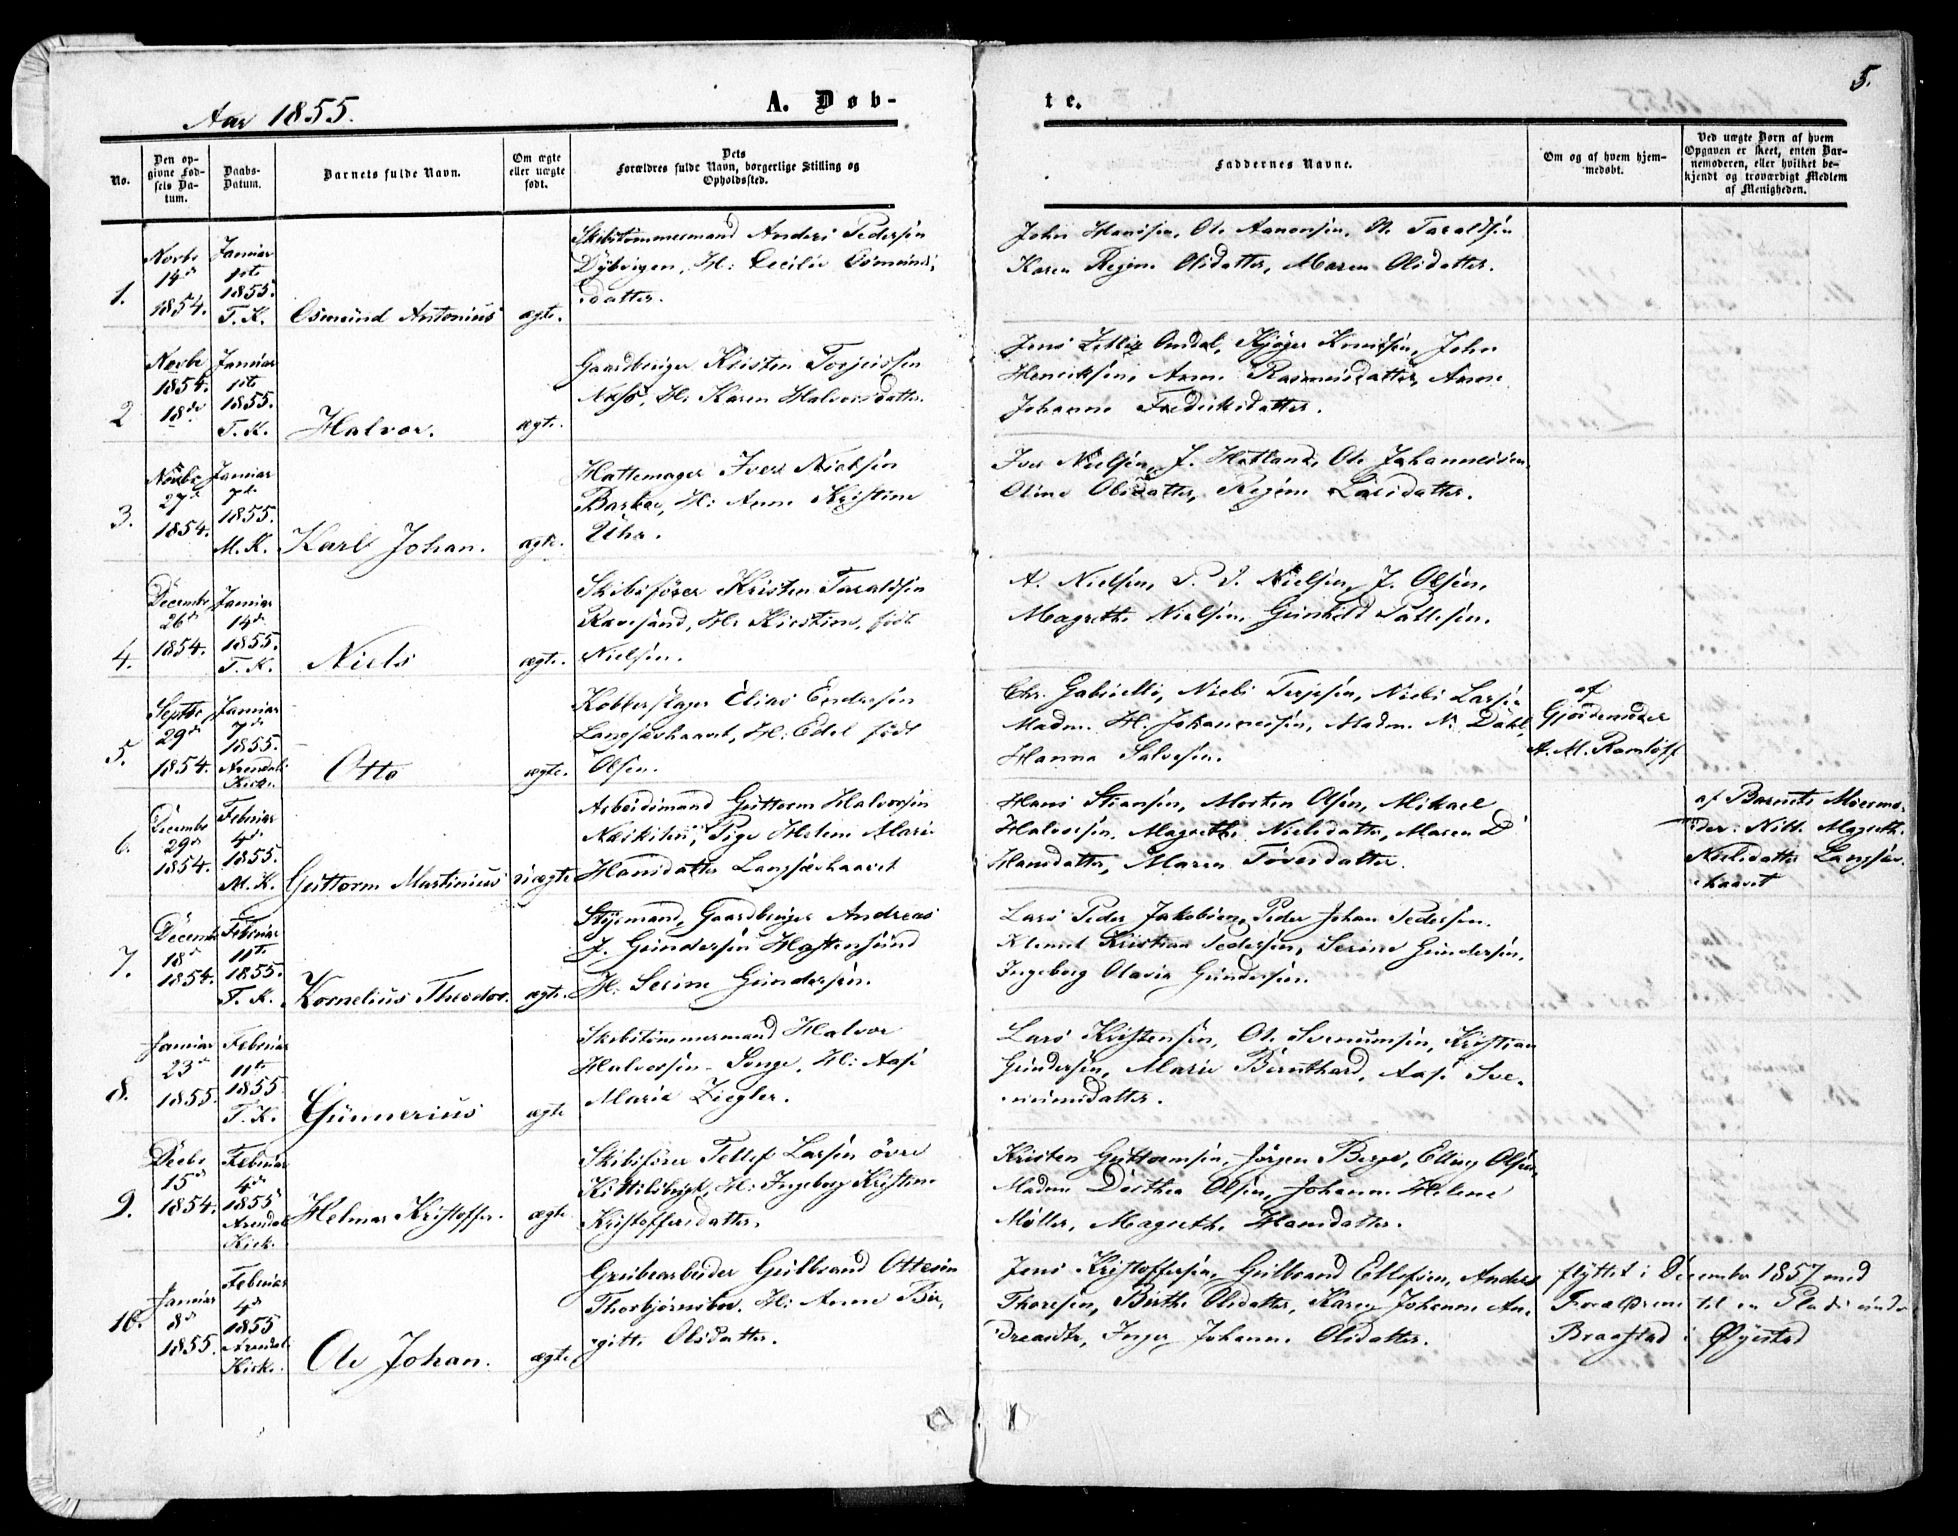 Aar 1855.
A. Døb-
te.
5.
No.
Den op-
givne Fød-
sels Da-
tum.
Daabs-
Datum.
Barnets fulde Navn.
Om ægte
eller uægte
født.
Dets
Forældres fulde Navn, borgerlige Stilling og
Opholdssted.
Faddernes Navne.
Om og af hvem hjem-
medøbt.
Ved uægte Børn af hvem
Opgaven er skeet, enten Bar-
nemoderen, eller hvilket be-
kjendt og troværdigt Medlem
af Menigheden.
1.
Novbr
14de
1854.
Januar
1ste
1855.
T. K.
Osmund Antonius
ægte.
Skibstømmermand Anders Pedersen
Dybvigen, H: Cecilie Osmunds
datter.
John Hansen, Ole Aanonsen, O. Taraldsen
Karen Regine Olsdatter, Maren Olsdatter.
2
Novbr
1854.
18de
Januar
1ste
1855.
T. K.
Halvor.
ægte.
Gaardbruger Kristen Torjeissen
Næsø, H: Karen Halvorsdatter.
Jens Omdal, Knudsen, John
Henriksen, Anne Rasmusdatter, Anne
Johanne Fredriksdatter.
3.
Novbr
27de
1854.
Januar
7de
1855.
M. K.
Karl Johan.
ægte.
Hattemager Iver Nielsen
Barboe, H: Anne Kristine
Uhr.
Iver Nielsen, J. Hetland, Ole Johannessen,
Oline Olsdatter, Regine Larsdatter.
4.
Decembr
26de
1854.
Januar
14de
1855.
T. K.
Niels
ægte.
Skibsfører Kristen Taraldsen
Ravesand, H: Kirstine, født
Nielsen.
A. Nielsen, P. V. Nielsen, J. Olsen,
Magrethe Nielsen, Gunhild Tallesen.
5.
Septbr
29de
1854.
Januar
7de
1855.
Arendals
Kirke.
Otto
ægte.
Kobberslager Elias Endresen
Langsævhaavet, H: Edel født
Olsen.
Chr. Gabrielli, Niels Terjesen, Niels Larsen
Madm. H. Johannessen, Madm. N. Dahl,
Hanna Salvesen.
af
Gjordemoder
A. M. Ramløff
6.
Decembr
29de
1854.
Februar
4de
1855.
M. K.
Guttorm Martinius
uægte
Arbeidsmand Guttorm Halvorsen
Næskilen, Pige Helene Marie
Hansdatter Langsævhaavet
Hans Stiansen, Morten Olsen, Mikael
Halvorsen, Magrethe Nielsdatter, Maren D
Hansdatter, Maren Tovesdatter.
af Barnets Mormo-
der: Nill. Magrethe
Nielsdatter Langsæv-
haavet
7.
Decembr
18de
1854.
Februar
11te
1855.
T. K.
Kornelius Theodor.
ægte.
Styrmand, Gaardbruger Andreas
J. Gundersen Hastensund
H: Serine Gundersen.
Lars Peder Jakobsen, Peder Johan Pedersen.
Klemet Kristian Pedersen, Serine Gundersen,
Ingeborg Olavia Gundersen.
8.
Januar
23de
1855.
Februar
11te
1855.
T. K.
Gunnerius
ægte
Skibstømmermand Halvor
Halvorsen Songe, H: Aase
Marie Ziegler.
Lars Kristensen, Ole Svenumsen, Kristian
Gundersen, Marie Bernthard, Aase Sve-
numsdatter.
9.
Decbr
15de
1854.
Februar
4de
1855
Arendals
Kirk.
Helmer Kristoffer.
ægte
Skibsfører Tellef Larsen øvre
Kittilsbugt, H: Ingeborg Kristine
Kristoffersdatter.
Kristen Guttormsen, Jørgen Berge, Elling Olsen,
Madm Dorthea Olsen, Johanne Helene
Møller, Magrethe Hansdatter.
10.
Januar
8de
1855.
Februar
4de
1855
Arendals
Kirke.
Ole Johan.
ægte
Grubearbeider Gulbrand Ottesen
Thorbjørnsbo, H: Anne Bir-
gitte Olsdatter.
Jens Kristoffersen, Gulbrand Ellefsen, Anders
Thoresen, Birthe Olsdatter, Karen Johanne An-
dreasdtr, Inger Johanne Olsdatter.
flyttet i December 1857 med
Forældrene til en Plads under
Braastad i Øyestad